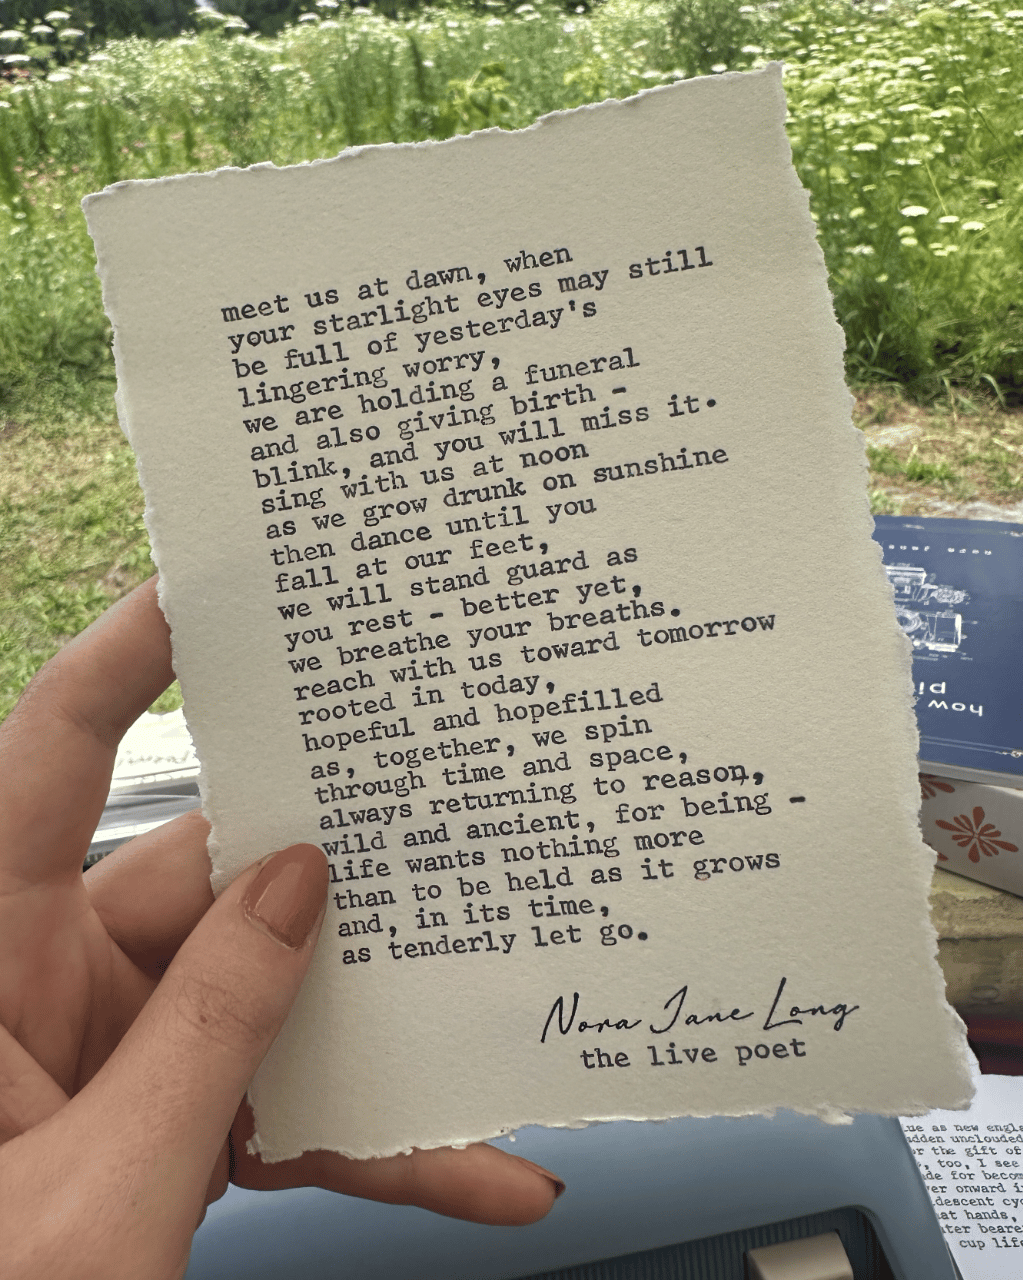 meet us at dawn, when
your starlight eyes may still
be full of yesterday's
lingering worry,
we are holding a funeral
and also giving birth -
blink, and you will miss it.
sing with us at noon
as we grow drunk on sunshine
then dance until you
fall at our feet,
we will stand guard as
you rest - better yet,
we breathe your breaths.
reach with us toward tomorrow
rooted in today,
hopeful and hopefilled
as, together, we spin
through time and space,
always returning to reason,
wild and ancient, for being -
life wants nothing more
than to be held as it grows
and, in its time,
as tenderly let go.
Nora Jane Long
the live poet
nora jane
how
pi
ue as new engla
dden unclouded
r the gift of
, too, I see
de for becom
er onward i
descent cy
at hands,
ter beare
cup life